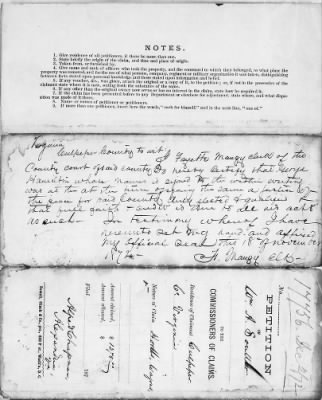 NOTES.
1. Give residence of all petitioners, if there be more than one.
2. State briefly the origin of the claim, and time and place of origin.
3. Taken from, or furnished by.
4. Give name and rank of officers who took the property, and the command to which they belonged, or what place the
property was removed, and for the use of what person, company, regiment or military organization it was taken, distinguishing
between facts stated upon personal knowledge, and those stated upon information and belief.
5. If any voucher, &c., was given, attach the original or a copy of it, to the petition; or, if not in the possession of the
claimant state where it is not, setting forth the substance of the same.
6. If any other than the original owner now owns or has an interest in the claim, state how he acquired it.
7. If the claim has been presented before to any Department or Bureau for adjustment, state where, and what dispo-
sition was made of it there.
8. Name or names of petitioner or petitioners.
9. If more than one petitioner, insert here the words, "each for himself" and in the next line, "one of."
Virginia
Culpeper County to wit I Fayette Mauzy clerk of the
County court of said county do hereby certify that George
Hamilton whose name is signed to the within writing
was at the time of signing the same a justice of
the peace for said County duly elected & qualified &
that full faith & credit is due to all his acts
as such. In testimony whereof I have
hereunto set my hand and affixed
my official seal this 18th of November
1872
F Mauzy Clk
No. 17756
PETITION
OF
Wm A. Soutter
TO THE
COMMISSIONERS OF CLAIMS.
Residence of Claimant, Culpeper
Co Virginia
Nature of Claim,
Amount claimed, $
Amount allowed, $
Filed 187
Chapman,
Alexandria
Va